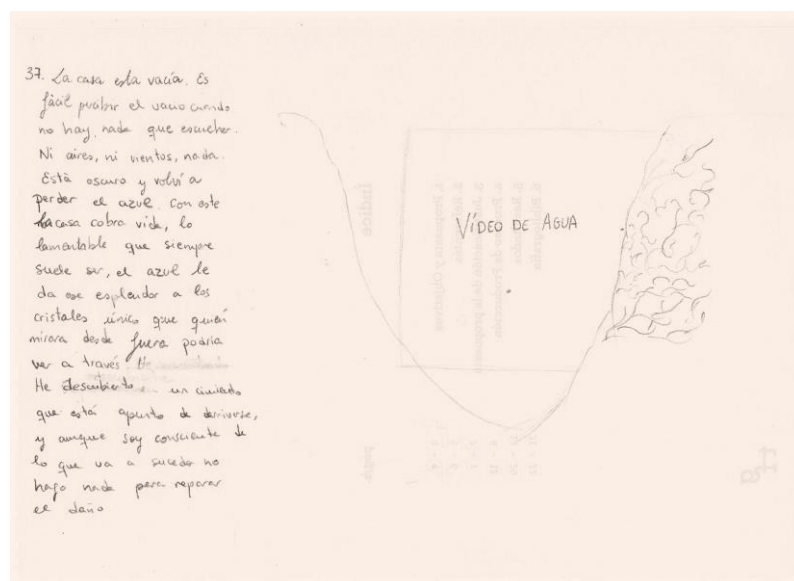 37. La casa esta vacía. Es
fácil probar el vacio cuando
no hay nada que escuchar.
Ni aires, ni vientos, nada.
Está oscuro y volví a
perder el azul. Con este
la casa cobra vida, lo
lamentable que siempre
suele ser, el azul le
da ese esplendor a los
cristales único que quien
mirara desde fuera podría
ver a través
He descubierto un
que está apunto de derivarse,
y aunque soy consciente de
lo que va a suceder no
hago nada para reparar
el daño
VÍDEO DE AGUA
Índice